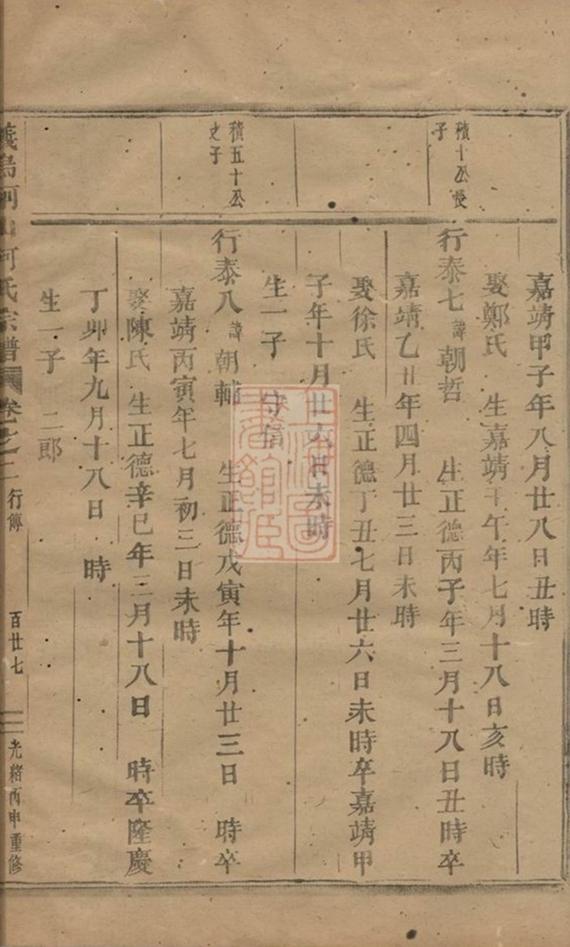 嘉靖甲子年八月廿八日丑時
娶鄭氏 生嘉靖壬午年七月十八日亥時
積十公長
子
行泰七 諱朝哲 生正德丙子年三月十八日丑時卒
嘉靖乙丑年四月廿三日未時
娶徐氏 生正德丁丑七月廿六日未時卒嘉靖甲
子年十月廿六日未時
生一子 守
積五十公
之子
行泰八 諱朝輔 生正德戊寅年十月廿三日 時卒
嘉靖丙寅年七月初三日未時
娶陳氏 生正德辛巳年三月十八日 時卒隆慶
丁卯年九月十八日 時
生一子 二郎
義烏河 何氏宗譜 卷之二 行傳 百廿七 光緒丙申重修